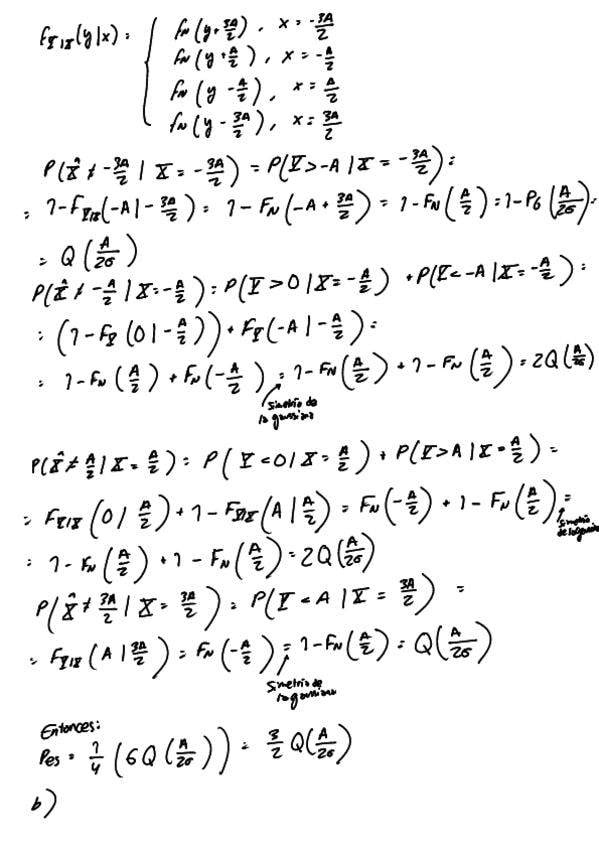 F_{Y|X}(y|x) = { F_N(y + 3A/2), x = -3A/2
F_N(y + A/2), x = -A/2
F_N(y - A/2), x = A/2
F_N(y - 3A/2), x = 3A/2
P(X̂ ≠ -3A/2 | X = -3A/2) = P(Y > -A | X = -3A/2) =
= 1 - F_{Y|X}(-A | -3A/2) = 1 - F_N(-A + 3A/2) = 1 - F_N(A/2) = 1 - P_G(A/2σ) =
= Q(A/2σ)
P(X̂ ≠ -A/2 | X = -A/2) = P(Y > 0 | X = -A/2) + P(Y < -A | X = -A/2) =
= (1 - F_Y(0 | -A/2)) + F_Y(-A | -A/2) =
= 1 - F_N(A/2) + F_N(-A/2) = 1 - F_N(A/2) + 1 - F_N(A/2) = 2Q(A/2σ)
simetría de
la gaussiana
P(X̂ ≠ A/2 | X = A/2) = P(Y < 0 | X = A/2) + P(Y > A | X = A/2) =
= F_{Y|X}(0 | A/2) + 1 - F_{Y|X}(A | A/2) = F_N(-A/2) + 1 - F_N(A/2) =
simetría
de la gaussiana
= 1 - F_N(A/2) + 1 - F_N(A/2) = 2Q(A/2σ)
P(X̂ ≠ 3A/2 | X = 3A/2) = P(Y < A | X = 3A/2) =
= F_{Y|X}(A | 3A/2) = F_N(-A/2) = 1 - F_N(A/2) = Q(A/2σ)
simetría de
la gaussiana
Entonces:
Pes = 1/4 (6Q(A/2σ)) = 3/2 Q(A/2σ)
b)